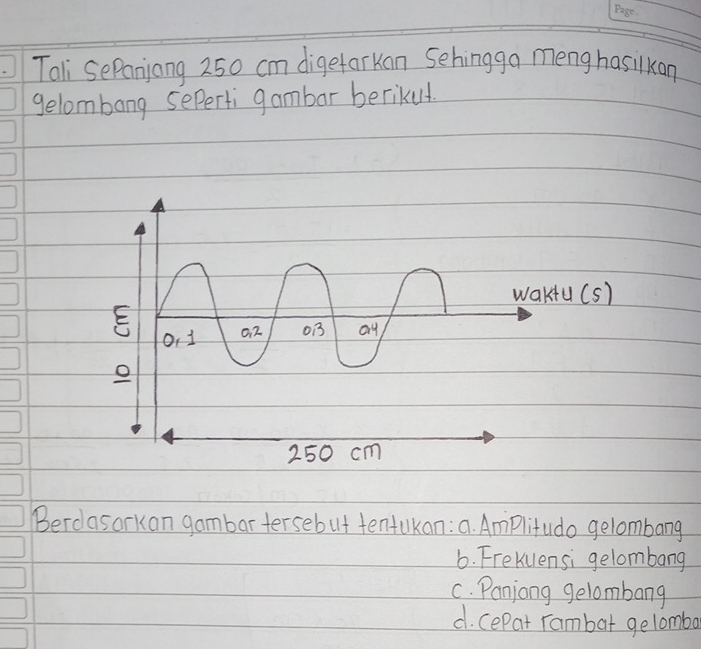 Page.
Tali sepanjang 250 cm digetarkan sehingga menghasilkan
gelombang seperti gambar berikut.
10 cm
waktu (s)
0,1 0,2 0,3 0,4
250 cm
Berdasarkan gambar tersebut tentukan: a. Amplitudo gelombang
b. Frekuensi gelombang
c. Panjang gelombang
d. cepat rambat gelomba